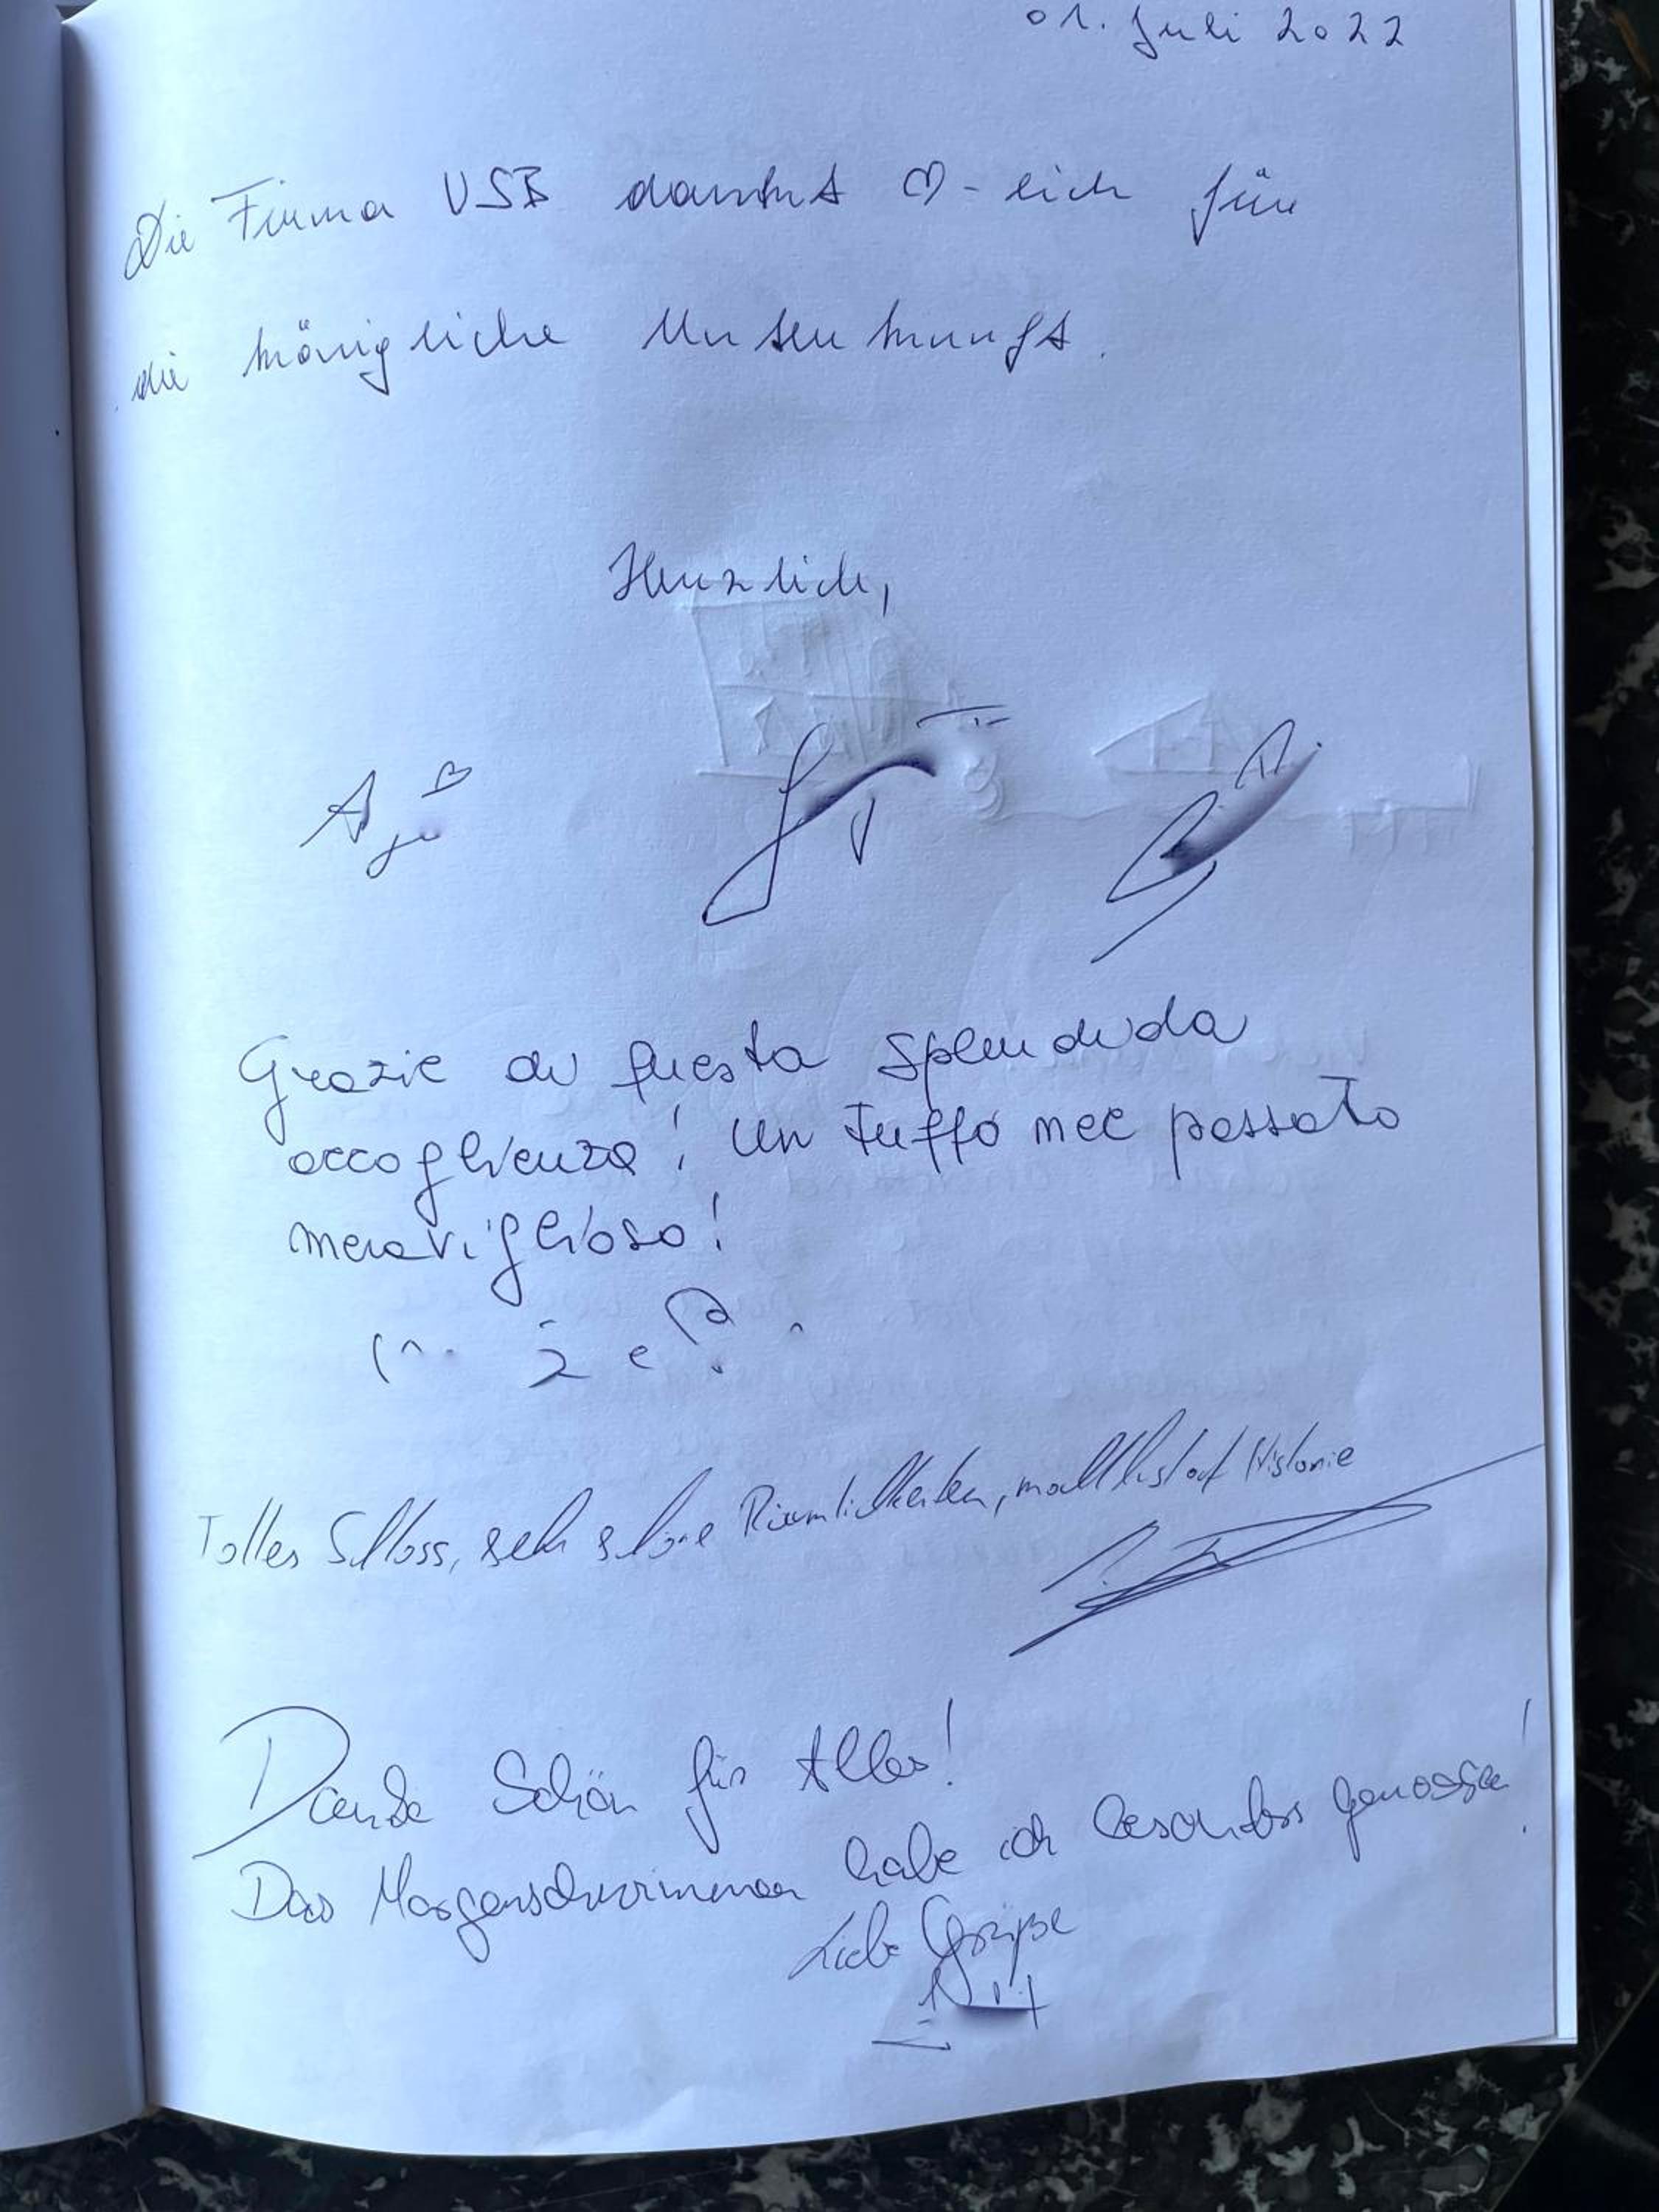 01. Juli 2022
Die Firma USB dankt ♡-lich für
die königliche Unterkunft.
Herzlich,
Grazie di questa splendida
accoglienza! Un tuffo nel passato
meraviglioso!
Tolles Schloss, sehr schöne Räumlichkeiten, macht Lust auf Historie
Danke Schön für Alles!
Das Morgenschwimmen habe ich besonders genossen!
Liebe Grüße